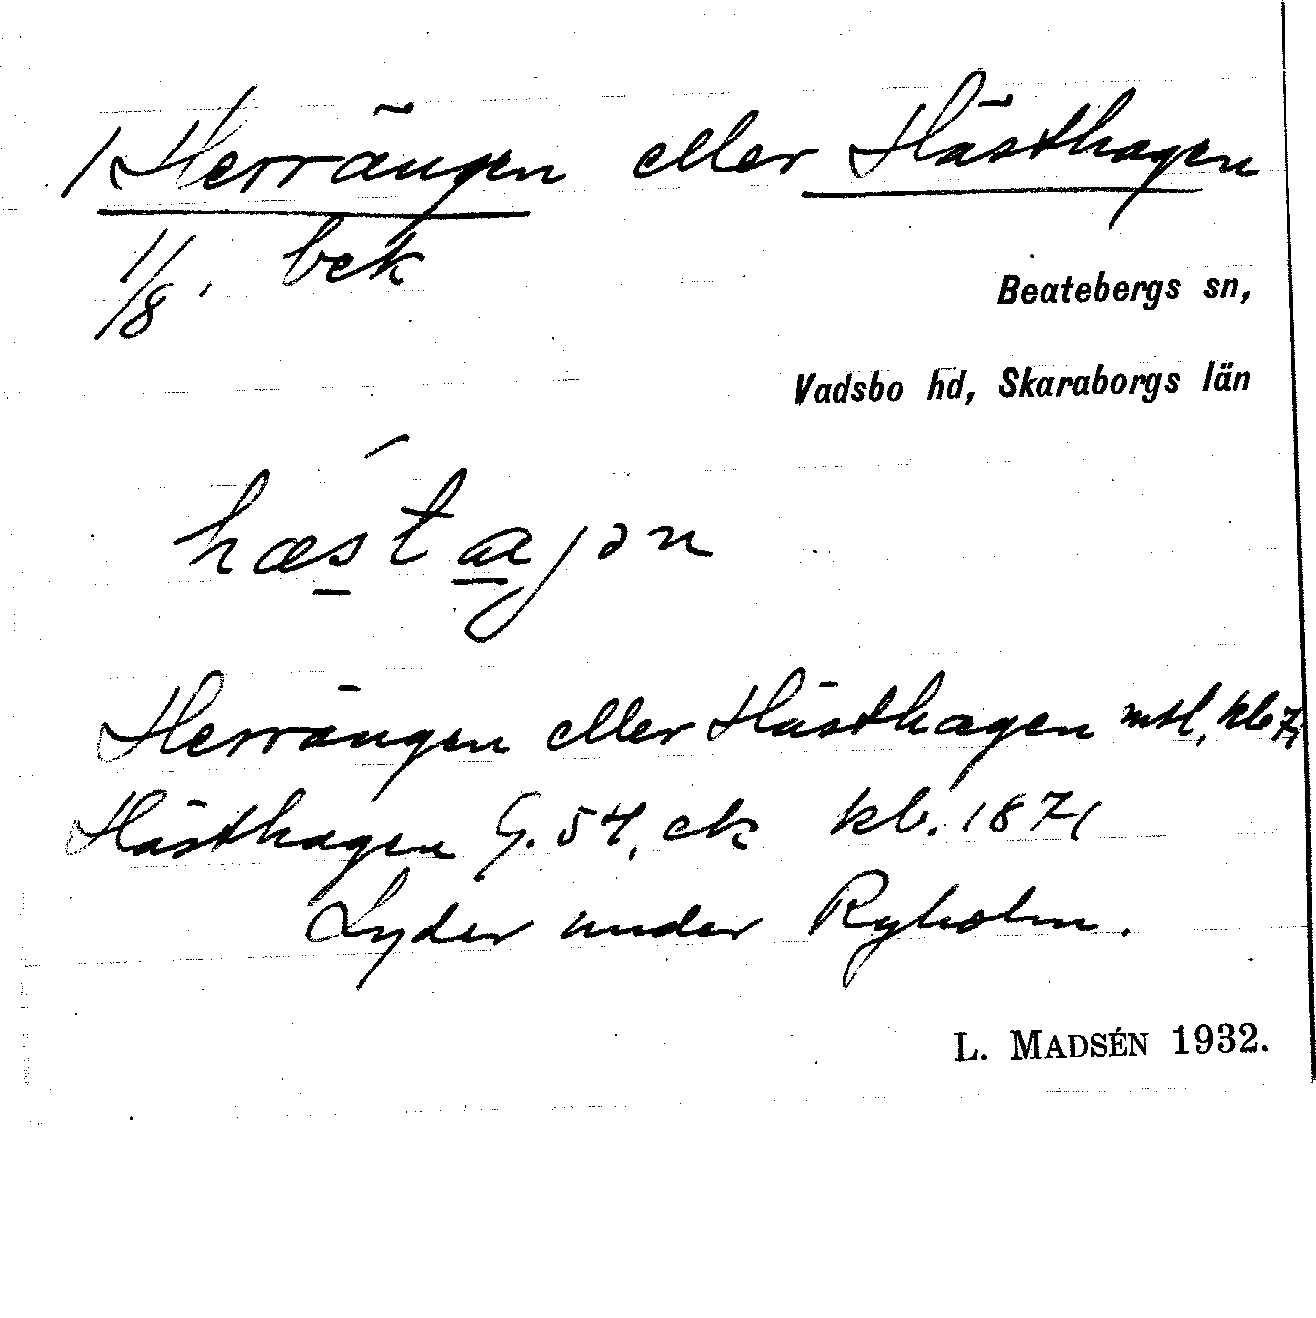 1 Herrängen eller Hästhagen
1/8, bek
Beatebergs sn,
Vadsbo hd, Skaraborgs län
hæstajən
Herrängen eller Hästhagen mtl, kb 71
Hästhagen G. 54, ek kb. 1871
Lyder under Ryholm.
L. MADSÉN 1932.